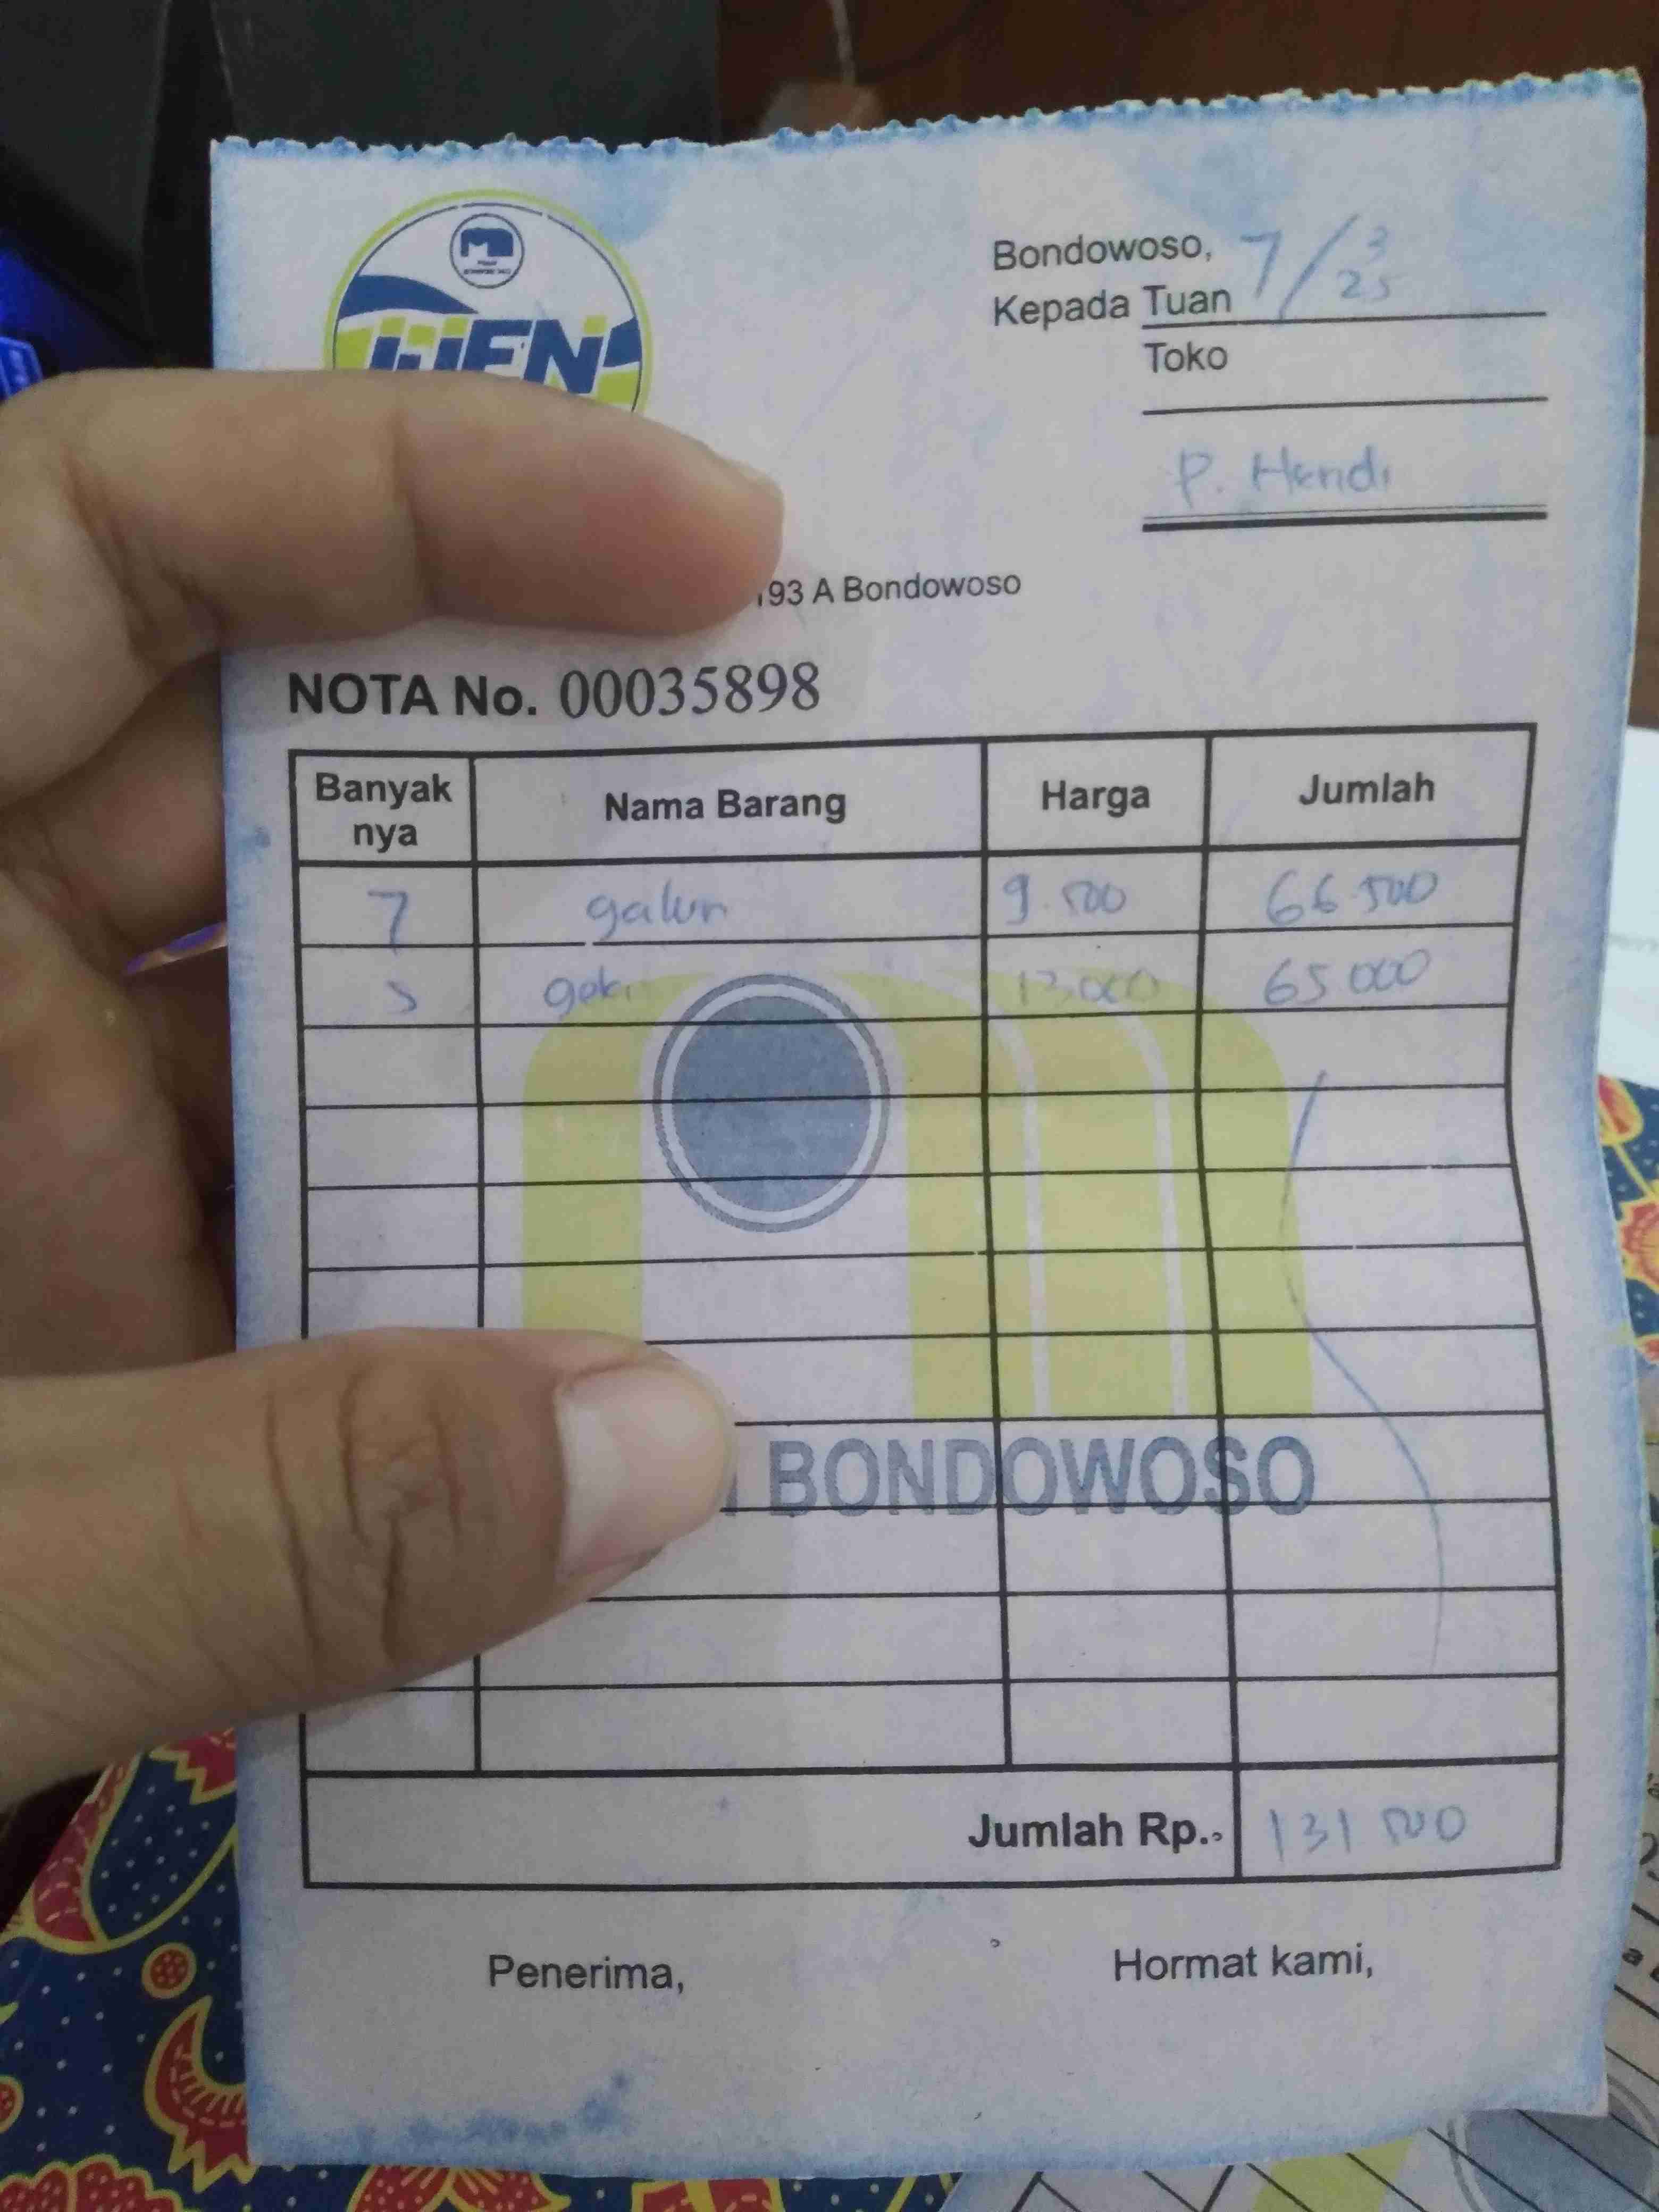 Bondowoso, 7/3 25
Kepada Tuan
Toko
P. Hendi
193 A Bondowoso
NOTA No. 00035898
Banyak nya Nama Barang Harga Jumlah
7 galon 9.500 66.500
5 13000 65 000
BONDOWOSO
Jumlah Rp. 131 500
Penerima, Hormat kami,